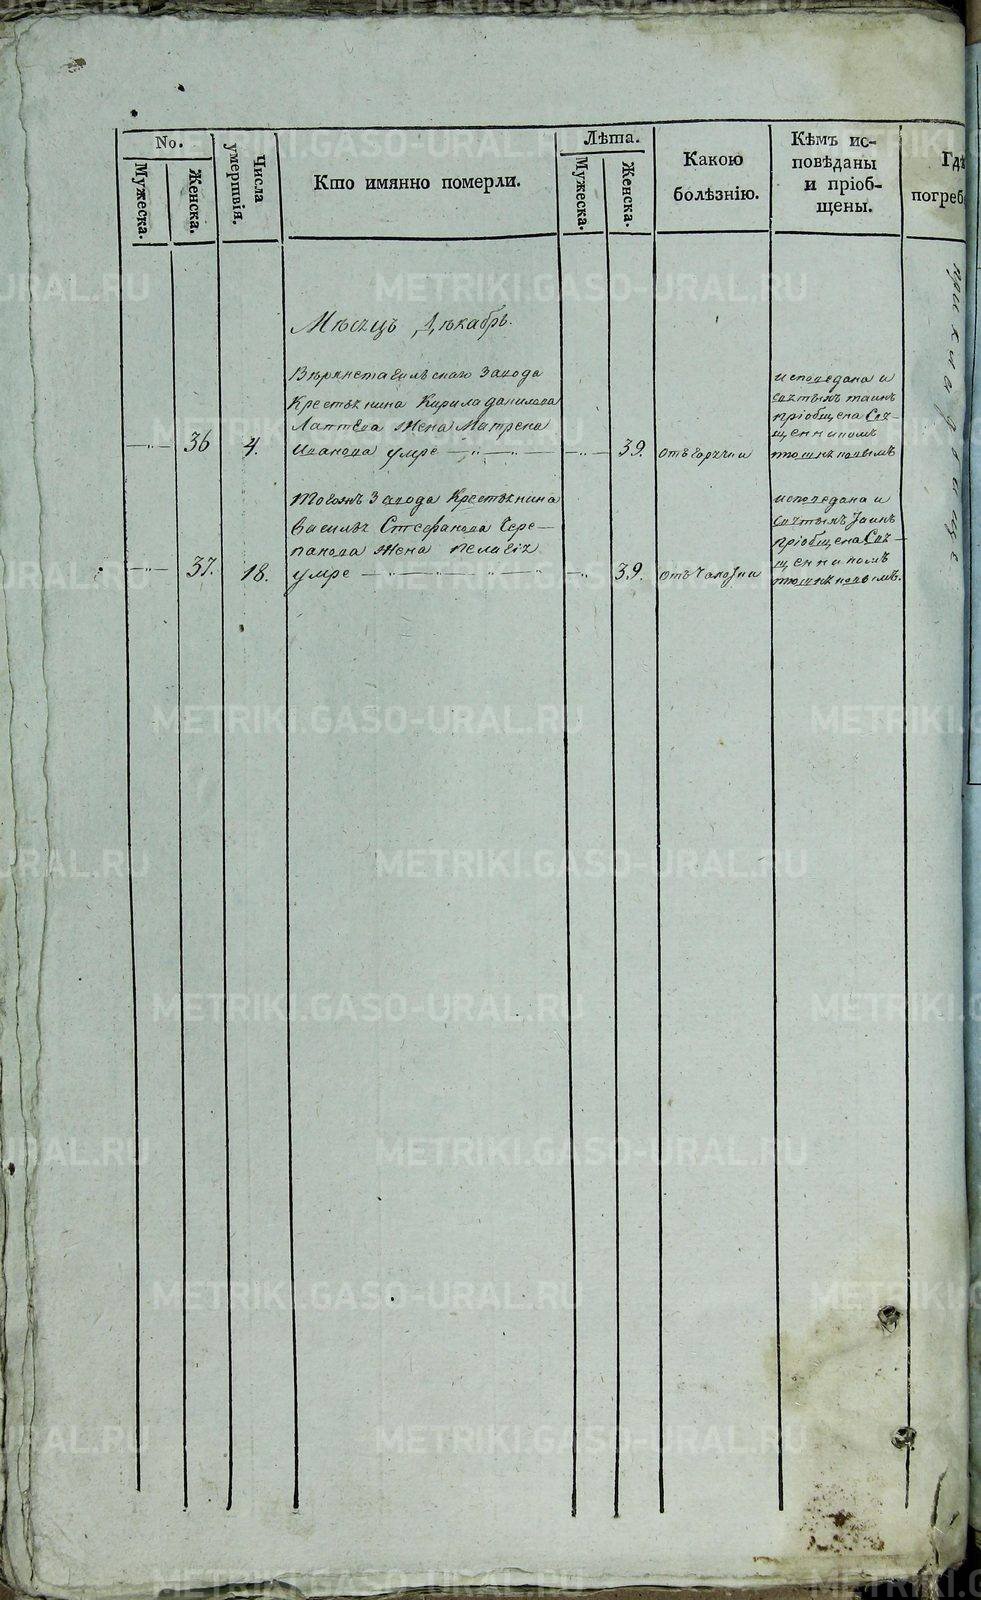 No.
Мужеска.
Женска.
Числа умертвія.
Кто имянно померли.
Лѣта.
Мужеска.
Женска.
Какою
болѣзнію.
Кѣмъ ис-
повѣданы
и пріоб-
щены.
Гдѣ
погреб
Мѣсяцъ Декабрь.
Верхнетагильскаго Завода
Крестьянина Кирила Данилова
Лаптева жена Матрена
36 4. Иванова умре 39. отъ горячки
исповедана и
святыхъ таинъ
пріобщена Свя-
щенникомъ
37. 18.
Тогожъ Завода Крестьянина
Василья Стефанова Чере-
панова жена Пелагія
умре 39. отъ чахотки
исповедана и
святыхъ таинъ
пріобщена Свя-
щенникомъ
METRIKI.GASO-URAL.RU